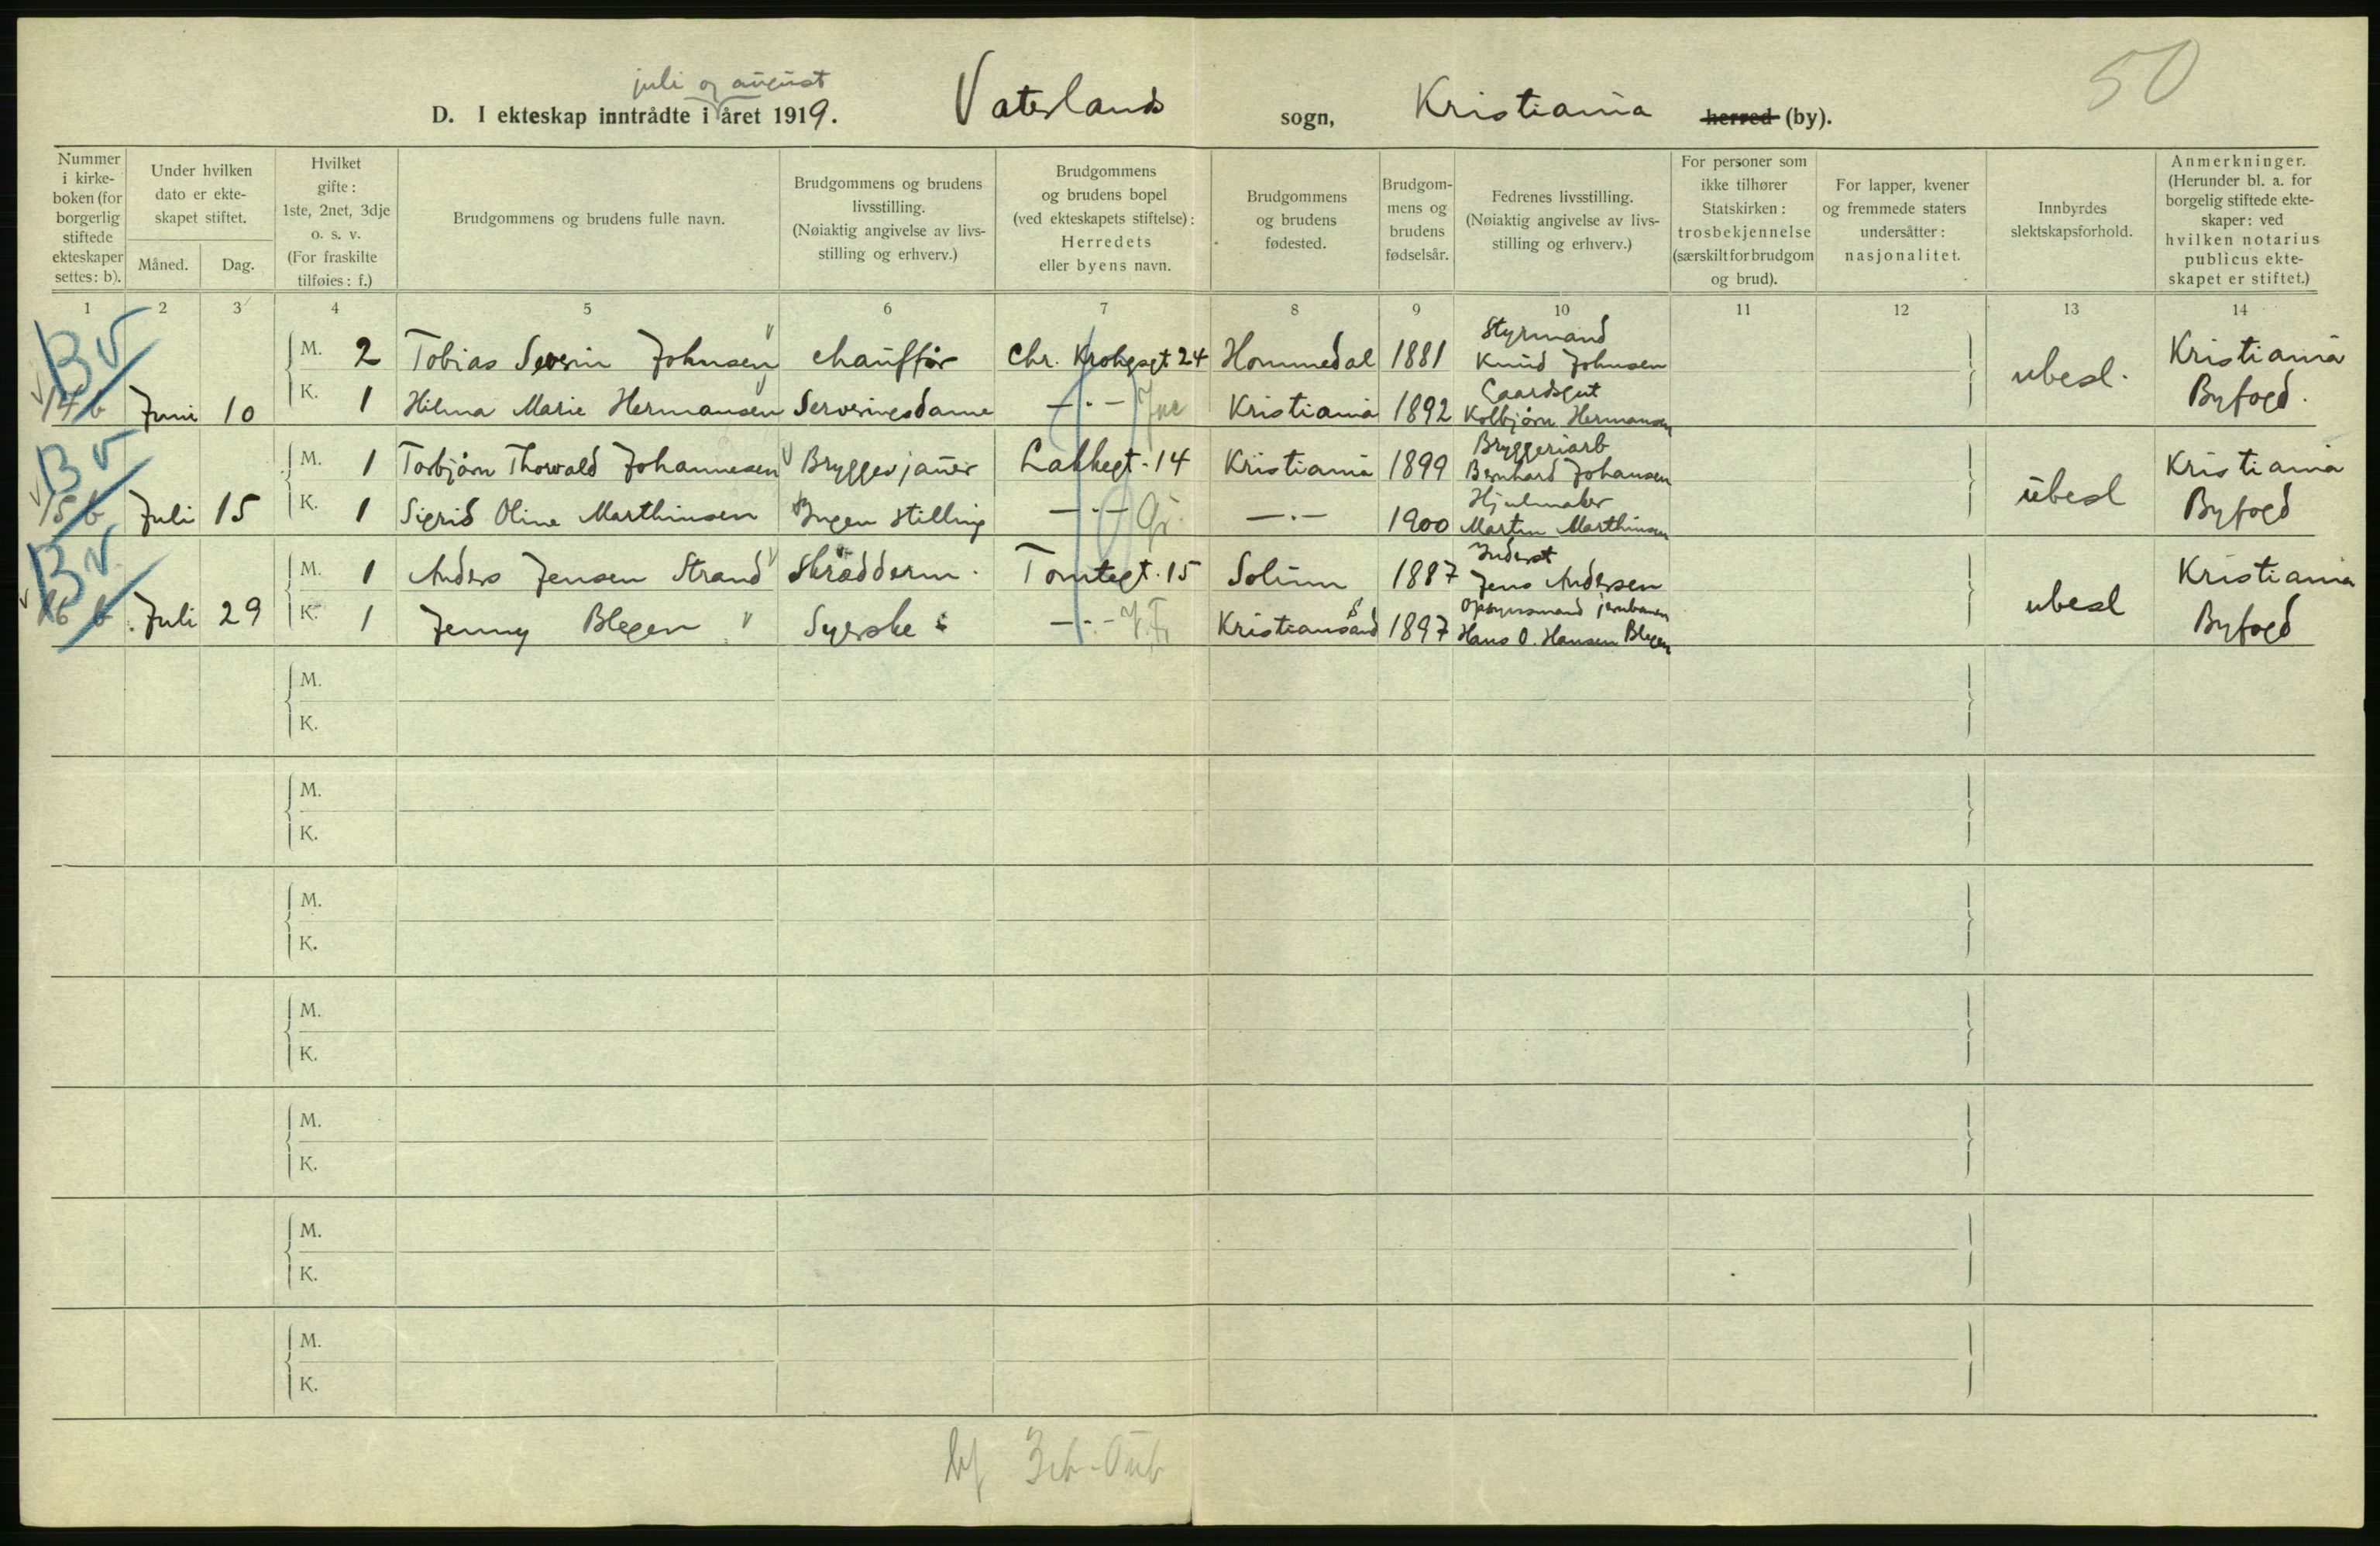 50
juli og august
D. I ekteskap inntrådte i året 1919. Vaterlands sogn, Kristiania herred (by).
Nummer i kirke-boken (for borgerlig stiftede ekteskaper settes: b).
Under hvilken dato er ekte-skapet stiftet.
Måned. Dag.
Hvilket gifte: 1ste, 2net, 3dje o. s. v. (For fraskilte tilføies: f.)
Brudgommens og brudens fulle navn.
Brudgommens og brudens livsstilling. (Nøiaktig angivelse av livs-stilling og erhverv.)
Brudgommens og brudens bopel (ved ekteskapets stiftelse): Herredets eller byens navn.
Brudgommens og brudens fødested.
Brudgom-mens og brudens fødselsår.
Fedrenes livsstilling. (Nøiaktig angivelse av livs-stilling og erhverv.)
For personer som ikke tilhører Statskirken: trosbekjennelse (særskilt for brudgom og brud).
For lapper, kvener og fremmede staters undersåtter: nasjonalitet.
Innbyrdes slektskapsforhold.
Anmerkninger. (Herunder bl. a. for borgelig stiftede ekte-skaper: ved hvilken notarius publicus ekte-skapet er stiftet.)
1 2 3 4 5 6 7 8 9 10 11 12 13 14
Bv
M. 2 Tobias Severin Johnsen chauffør Chr. Krohgsgt 24 Hommedal 1881 Styrmand Knud Johnsen
14 b Juni 10 K. 1 Hilma Marie Hermansen Serveringsdame —·— Kristiania 1892 Gaardsgut Kolbjørn Hermansen
ubesl. Kristiania Byfogd.
Bv
M. 1 Torbjørn Thorvald Johannesen Bryggerjauer Lakkegt. 14 Kristiania 1899 Bryggeriarb Bernhard Johansen
15 b Juli 15 K. 1 Sigrid Oline Marthinsen Ingen stilling —·— —·— 1900 Hjulmaker Martin Marthinsen
ubesl Kristiania Byfogd
Bv
M. 1 Anders Jensen Strand Skrædderm. Tomtegt. 15 Solum 1887 Inderst Jens Andersen
16 b Juli 29 K. 1 Jenny Blegen Syerske —·— Kristiansand 1897 Opsynsmand jernbanen Hans O. Hansen Blegen
ubesl Kristiania Byfogd
M.
K.
M.
K.
M.
K.
M.
K.
M.
K.
M.
K.
M.
K.